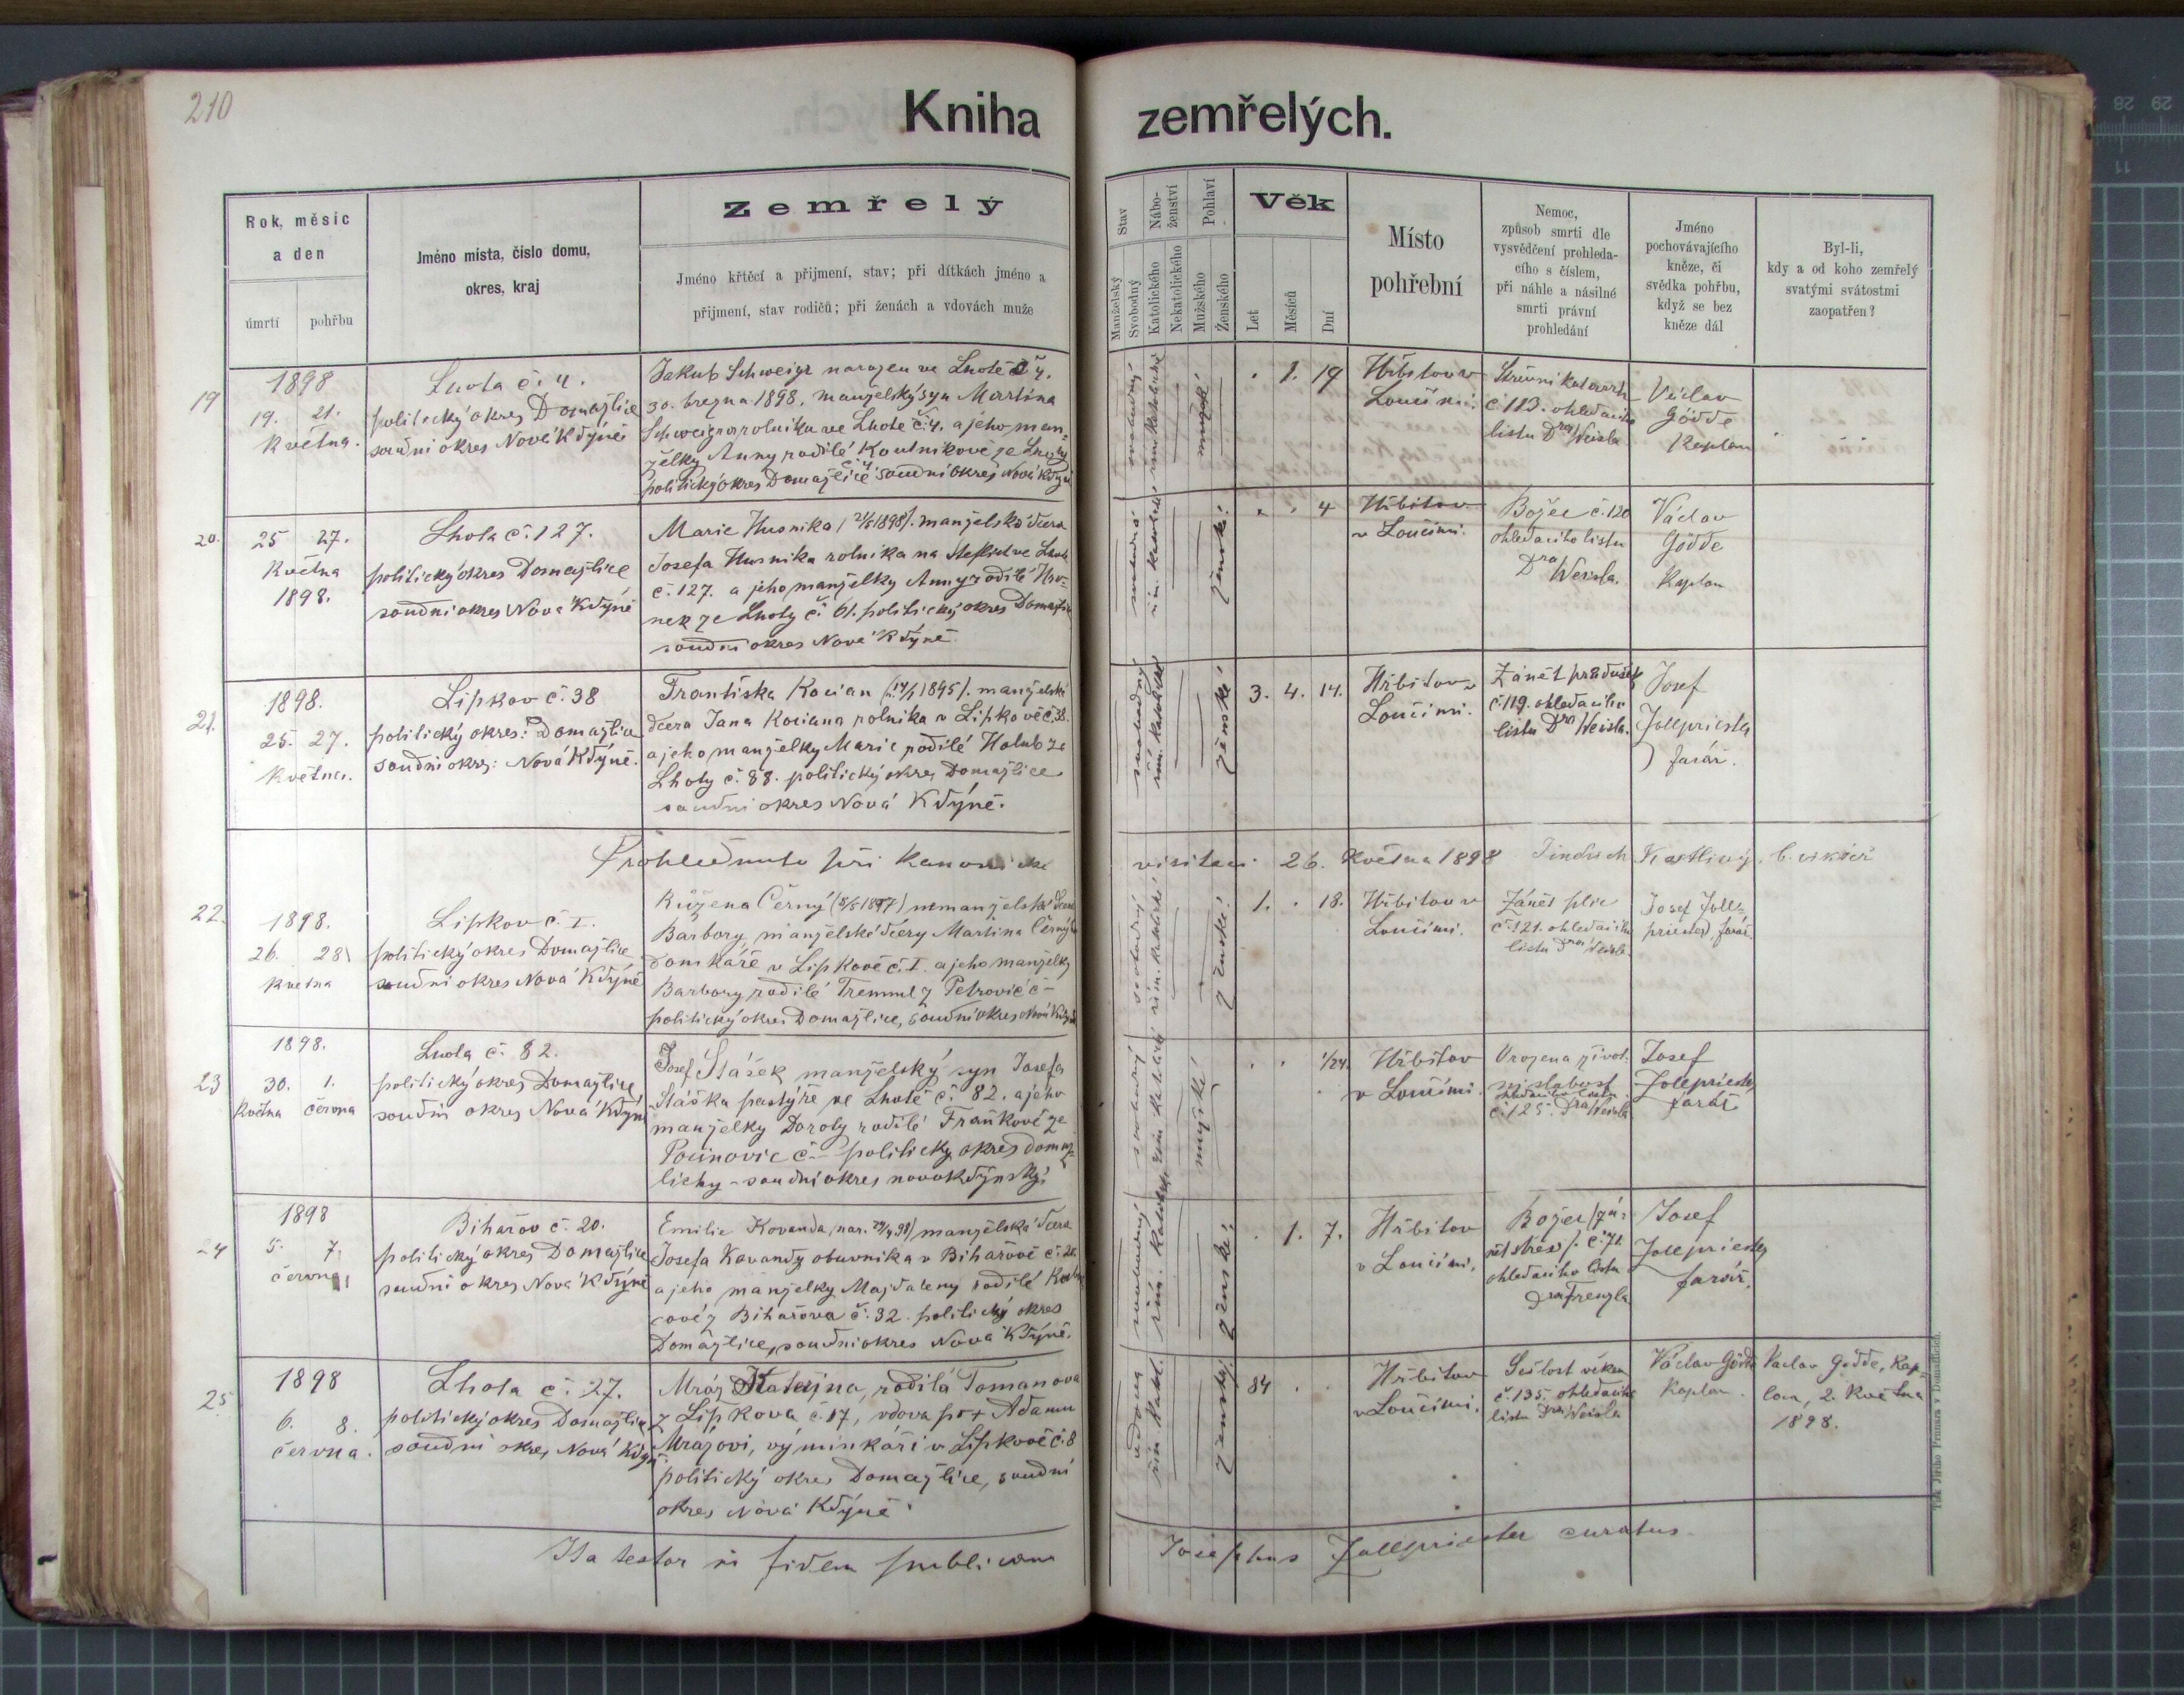 210
Kniha zemřelých.
Rok, měsíc
a den
úmrtí pohřbu
Jméno místa, číslo domu,
okres, kraj
Zemřelý
Jméno křtěcí a příjmení, stav; při dítkách jméno a
příjmení, stav rodičů; při ženách a vdovách muže
Stav
Manželský
Svobodný
Nábo-
ženství
Katolického
Nekatolického
Pohlaví
Mužského
Ženského
Věk
Let
Měsíců
Dní
Místo
pohřební
Nemoc,
způsob smrti dle
vysvědčení prohleda-
cího s číslem,
při náhle a násilné
smrti právní
prohledání
Jméno
pochovávajícího
kněze, či
svědka pohřbu,
když se bez
kněze dál
Byl-li,
kdy a od koho zemřelý
svatými svátostmi
zaopatřen?
19
1898
19. 21.
května.
Lhota č. 4.
politický okres Domažlice
soudní okres Nové Kdýně
Jakub Schweigr narozen ve Lhotě č 4.
30. března 1898, manželský syn Martina
Schweigra rolníka ve Lhotě č. 4. a jeho man-
želky Anny rodilé Koutníkové ze Lhoty
č 4
politický okres Domažlice soudní okres Nová Kdýně
svobodný
mužské
. 1. 19
Hřbitov v
Loučimi.
Střevní katarrh
č. 113. ohledacího
listu Dra Weisla
Václav
Gödde
Kaplan
20.
25 27.
Května
1898.
Lhota č. 127.
politický okres Domažlice
soudní okres Nová Kdýně
Marie Husnika (21/5 1898). manželská dcera
Josefa Husnika rolníka na ve Lhotě
č. 127. a jeho manželky Anny rodilé Hro-
nek ze Lhoty č. 61. politický okres Domažlice
soudní okres Nová Kdýně.
ženské
. . 4
Hřbitov
v Loučimi.
Božec č. 120
ohledacího listu
Dra Weisla.
Václav
Gödde
Kaplan
21.
1898.
25. 27.
Května.
Lipkov č. 38
politický okres: Domažlice
soudní okres: Nová Kdýně.
Františka Kocian manželská
dcera Jana Kociana rolníka v Lipkově č. 38.
a jeho manželky Marie rodilé Holub ze
Lhoty č. 88. politický okres Domažlice
soudní okres Nová Kdýně.
svobodný
řím. katolické
ženské
3. 4. 14.
Hřbitov v
Loučimi.
Zánět průdušek
č. 119. ohledacího
listu Dra Weisla.
Josef
Jollepriester
farář.
Prohlednuto při kanonické visitaci 26. Května 1898 Jindřich b. vikář
22.
1898.
26. 28
května
Lipkov č. I.
politický okres Domažlice
soudní okres Nová Kdýně
Růžena Černý (8/5 1897) nemanželská dcera
Barbory, manželské dcery Martina Černýho
domkáře v Lipkově č. I. a jeho manželky
Barbory rodilé Tremml z Petrovic č –
politický okres Domažlice, soudní okres Nová Kdýně
svobodný
řím. katolické
ženské
1. . 18.
Hřbitov v
Loučimi.
Zánět plic
č. 121. ohledacího
listu Dra Weisla.
Josef Jolle-
priester farář.
23
1898.
30. 1.
Května června
Lhota č. 82.
politický okres Domažlice
soudní okres Nová Kdýně
Josef Stášek manželský syn Josefa
Stáška pastýře ve Lhotě č. 82. a jeho
manželky Doroty rodilé Fraňkové ze
Pocinovic č – politický okres domaž-
lický – soudní okres novokdýnský.
svobodný
řím. katolický
mužské
. . 1/24.
Hřbitov
v Loučimi.
Vrozená život-
ní slabost
ohledacího listu
č. 125. Dra Weisla
Josef
Jollepriester
farář
24
1898
5. 7.
června
Bihařov č. 20.
politický okres Domažlice
soudní okres Nová Kdýně
Emilie Kovanda, nar. 29/4 98) manželská dcera
Josefa Kovandy obuvníka v Bihařově č. 20.
a jeho manželky Majdaleny rodilé
cové z Bihařova č. 32. politický okres
Domažlice, soudní okres Nová Kdýně.
svobodný
řím. katolické
ženské
. 1. 7.
Hřbitov
v Loučimi.
Božec (zá-
nět střev). č. 71.
ohledacího listu
Dra Frenzla
Josef
Jollepriester
farář.
25
1898
6. 8.
června.
Lhota č. 27.
politický okres Domažlice
soudní okres Nová Kdýně
Mráz Kateřina, rodilá Tomanova
z Lipkova č. 17, vdova po + Adamu
Mrázovi, výminkáři v Lipkově č. 8
politický okres Domažlice, soudní
okres Nová Kdýně.
vdova
řím. katol.
ženský
84 . .
Hřbitov
v Loučimi.
Sešlost věkem
č. 135. ohledacího
listu Dra Weisla
Václav Gödde
Kaplan.
Václav Gödde, Kap-
lan, 2. Května
1898.
Ita testor in fidem publicam Josephus Jollepriester curatus.
Tisk Jiřího Prunara v Domažlicích.